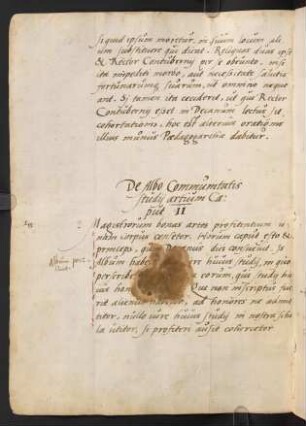 si quid ipsum moretur, in suum locum ali
um substituere qui dicat. Reliquas duas ipse
& Rector Contubernij per se obeunto. nisi
ita impediti morbo, aut necessitate salutis
fortunarumq suarum, ut omnino neque
ant. Si tamen ita ceciderit, ut qui Rector
Contubernij esset in Decanum lectus sit
cohortationes, hoc est alterum orationum
illius munus Pædagogarchæ dabitur.
De Albo Communitatis
studij artium Ca:
put 11
Magistrorum bonas artes profitentium u
num corpus conseter. Horum caput esto &
princeps, qui Decanus dici consuevit. Is
Album habe huius studij, in quo
perscrib eorum, qui studij hu
ius han Que non inscriptus fue
rit ad honores ne admit
titor, nullo iure huius studij in nostra scho
la utitor, si profiteri ausit cohercetor